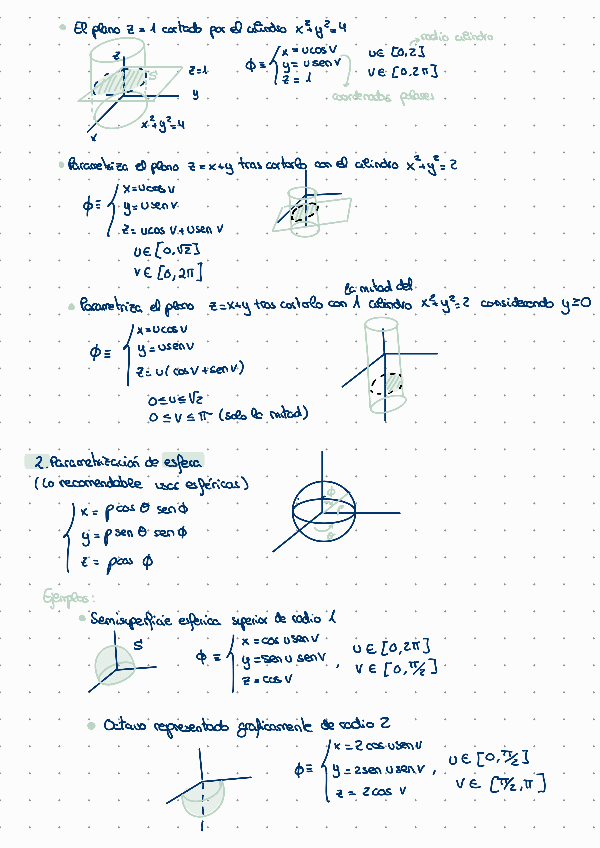 El plano z = 1 cortado por el cilindro x²+y²=4
radio cilindro
Φ ≡ { x = u cos v
y = u sen v
z = 1
u ∈ [0,2]
v ∈ [0,2π]
coordenadas polares
z
S
z=1
y
x
x²+y²=4
Parametriza el plano z = x+y tras cortarlo con el cilindro x²+y²=2
Φ ≡ { x = u cos v
y = u sen v
z = u cos v + u sen v
u ∈ [0,√2]
v ∈ [0,2π]
la mitad del
Parametriza el plano z=x+y tras cortarlo con 1 cilindro x²+y²=2 considerando y≥0
Φ ≡ { x = u cos v
y = u sen v
z = u(cos v + sen v)
0 ≤ u ≤ √2
0 ≤ v ≤ π (solo la mitad)
2. Parametrización de esfera
(Lo recomendable usar esféricas)
{ x = ρ cos θ sen ϕ
y = ρ sen θ sen ϕ
z = ρ cos ϕ
ϕ
ρ
θ
Ejemplos:
Semisuperficie esférica superior de radio 1
S
Φ ≡ { x = cos u sen v
y = sen u sen v ,
z = cos v
u ∈ [0,2π]
v ∈ [0,π/2]
Octavo representado gráficamente de radio 2
Φ ≡ { x = 2 cos u sen v
y = 2 sen u sen v ,
z = 2 cos v
u ∈ [0,π/2]
v ∈ [π/2,π]